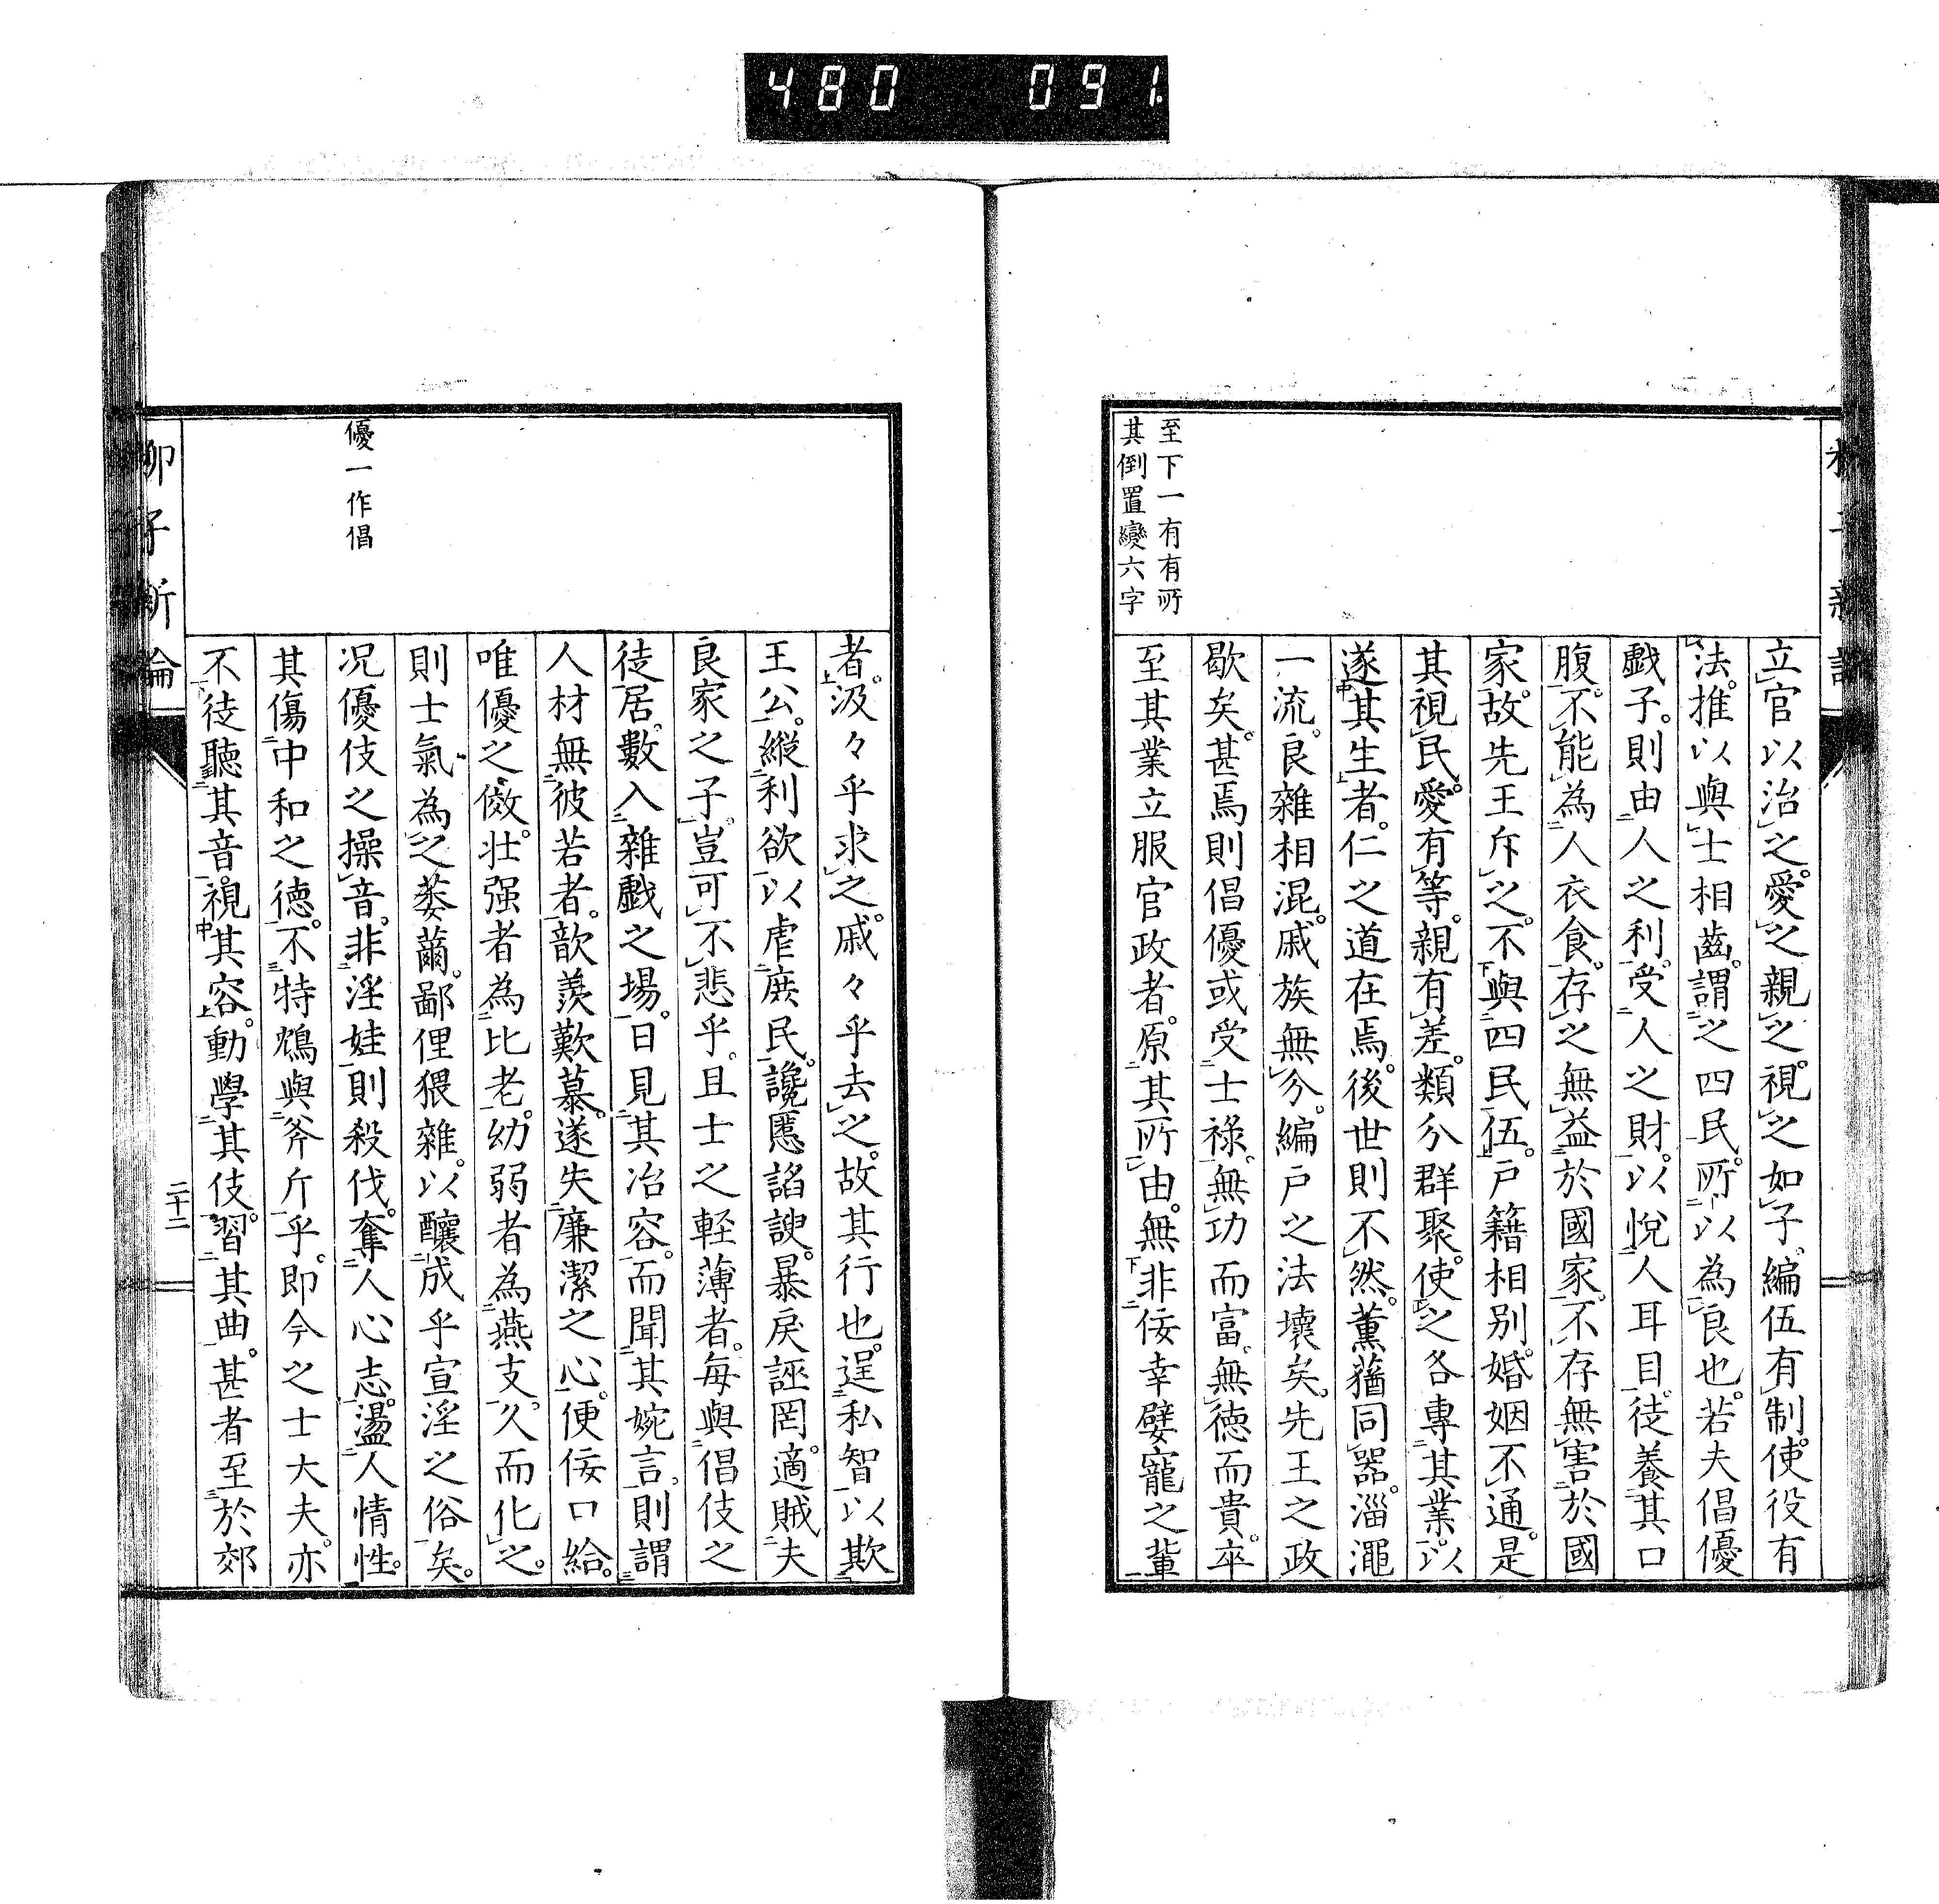 480 091
立官以治之。愛之親之。視之如子。編伍有制。使役有
法。推以與士相齒。謂之四民。所以為良也。若夫倡優
戱子。則由人之利。受人之財。以悅人耳目。徒養其口
腹。不能為人衣食。存之無益於國家。不存無害於國
家。故先王斥之。不與四民伍。戶籍相別。婚姻不通。是
其視民愛。有等。親有差。類分群聚。使之各專其業。以
遂其生者。仁之道在焉。後世則不然。薫蕕同器。淄澠
一流。良雜相混。戚族無分。編戶之法壞矣。先王之政
歇矣。甚焉則倡優或受士祿。無功而富。無德而貴。卒
至其業立服官政者。原其所由。無非佞幸嬖寵之輩
至下一有有所
其倒置變六字
者。汲々乎求之。戚々乎去之。故其行也。逞私智以欺
王公。縱利欲以虐庶民。讒慝諂諛。暴戾誣罔。適賊夫
良家之子。豈可不悲乎。且士之輕薄者。每與倡伎之
徒居。數入雜戱之場。日見其冶容。而聞其婉言。則謂
人材無彼若者。歆羨歎慕。遂失廉潔之心。便佞口給。
唯優之傚。壮强者為比老。幼弱者為燕支。久而化之。
則士氣為之萎薾。鄙俚猥雜。以釀成乎宣淫之俗矣。
况優伎之操音。非淫娃則殺伐。奪人心志。盪人情性。
其傷中和之德。不特鴆與斧斤乎。即今之士大夫。亦
不徒聽其音。視其容。動學其伎。習其曲。甚者至於郊
優一作倡
柳子新論
二十二